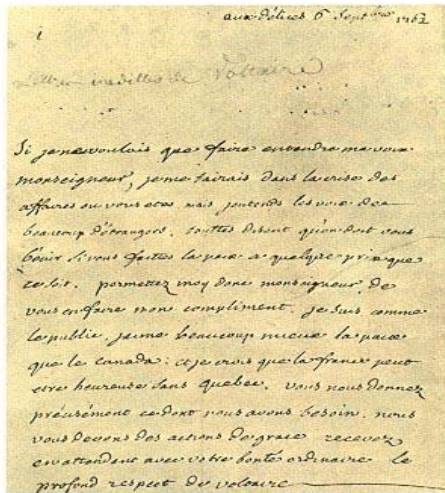 aux délices 6 Septbre 1762
Lettres inedittes de Voltaire
Si je ne voulois que faire entendre ma voix
monseigneur, je me tairais dans la crise des
affaires ou vous etes mais j'entends les voix de
beaucoup d'étrangers, touttes disent qu'on doit vous
bénir si vous faittes la paix a quelque prix que
ce soit. permettez moy donc monseigneur de
vous en faire mon compliment. je suis comme
le public, j'aime beaucoup mieux la paix
que le canada: et je crois que la france peut
etre heureuse sans quebec. vous nous donnez
précisément ce dont nous avons besoin. nous
vous devons des actions de grace. recevez
en attendant avec votre bonté ordinaire le
profond respect de voltaire